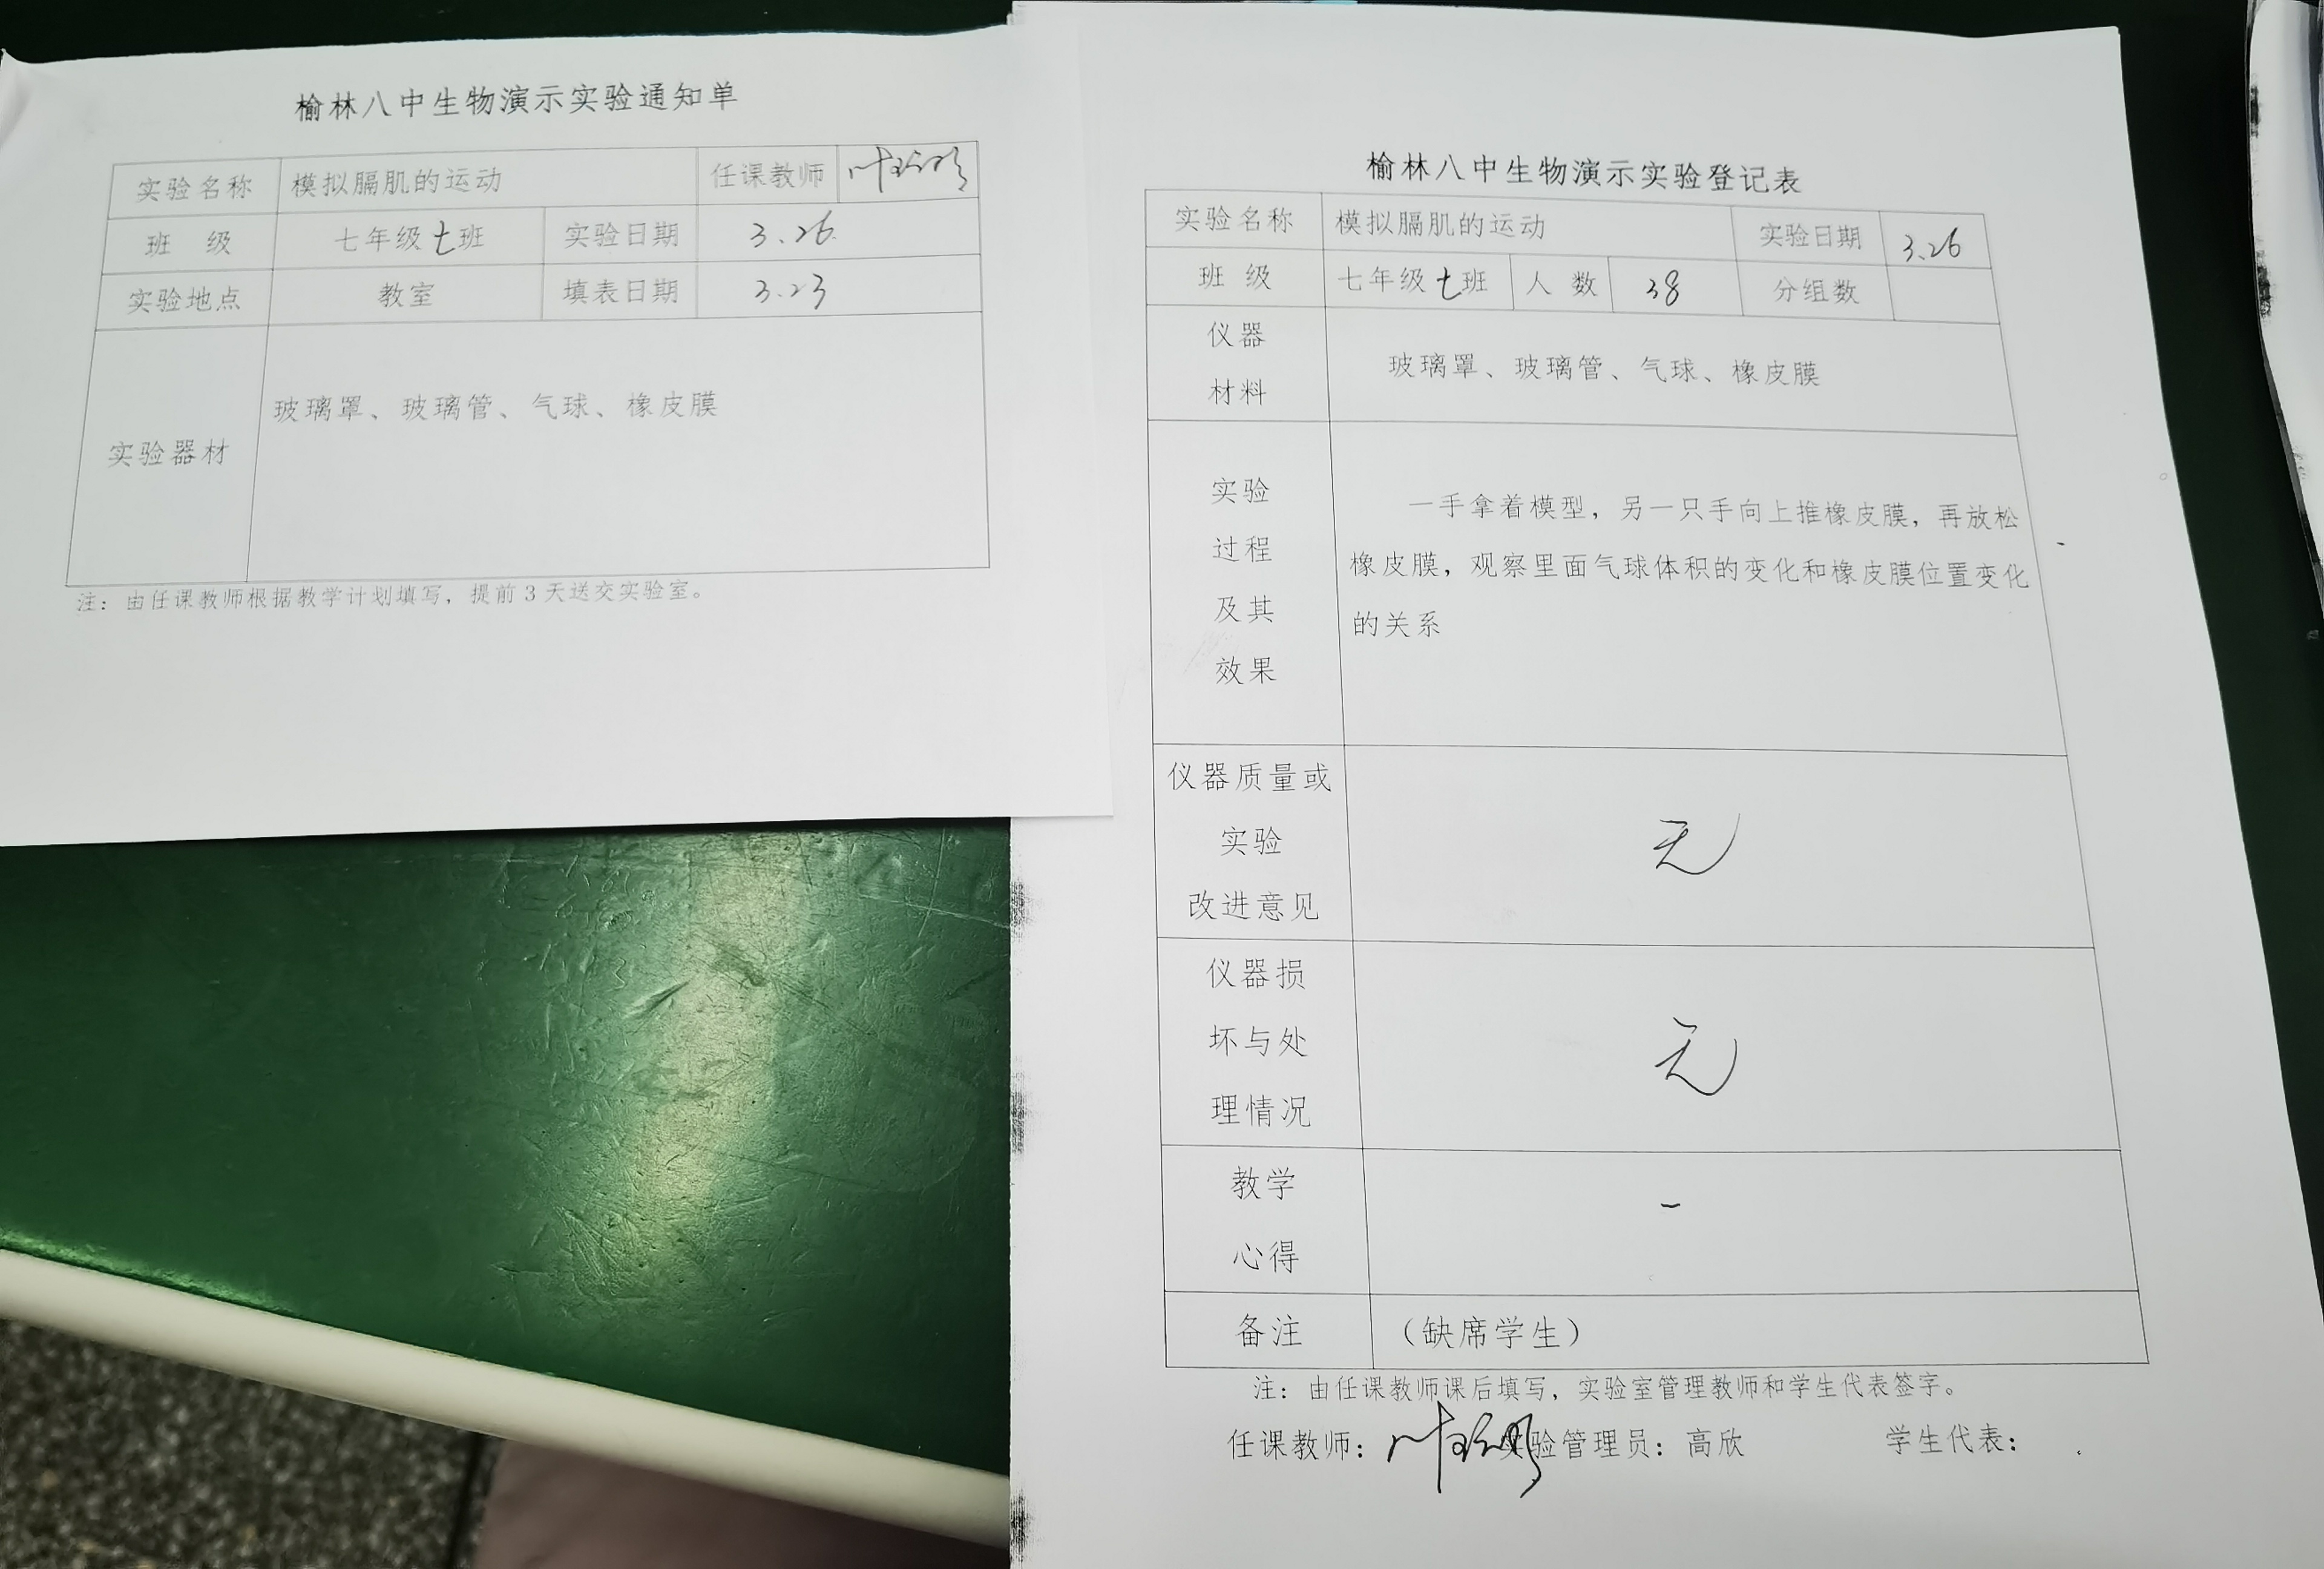 榆林八中生物演示实验通知单
实验名称 模拟膈肌的运动 任课教师
班 级 七年级七班 实验日期 3.26
实验地点 教室 填表日期 3.23
实验器材 玻璃罩、玻璃管、气球、橡皮膜
注：由任课教师根据教学计划填写，提前3天送交实验室。
榆林八中生物演示实验登记表
实验名称 模拟膈肌的运动 实验日期 3.26
班 级 七年级七班 人 数 38 分组数
仪器
材料
玻璃罩、玻璃管、气球、橡皮膜
实验
过程
及其
效果
一手拿着模型，另一只手向上推橡皮膜，再放松
橡皮膜，观察里面气球体积的变化和橡皮膜位置变化
的关系
仪器质量或
实验
改进意见
无
仪器损
坏与处
理情况
无
教学
心得
备注 （缺席学生）
注：由任课教师课后填写，实验室管理教师和学生代表签字。
任课教师： 实验管理员：高欣 学生代表：